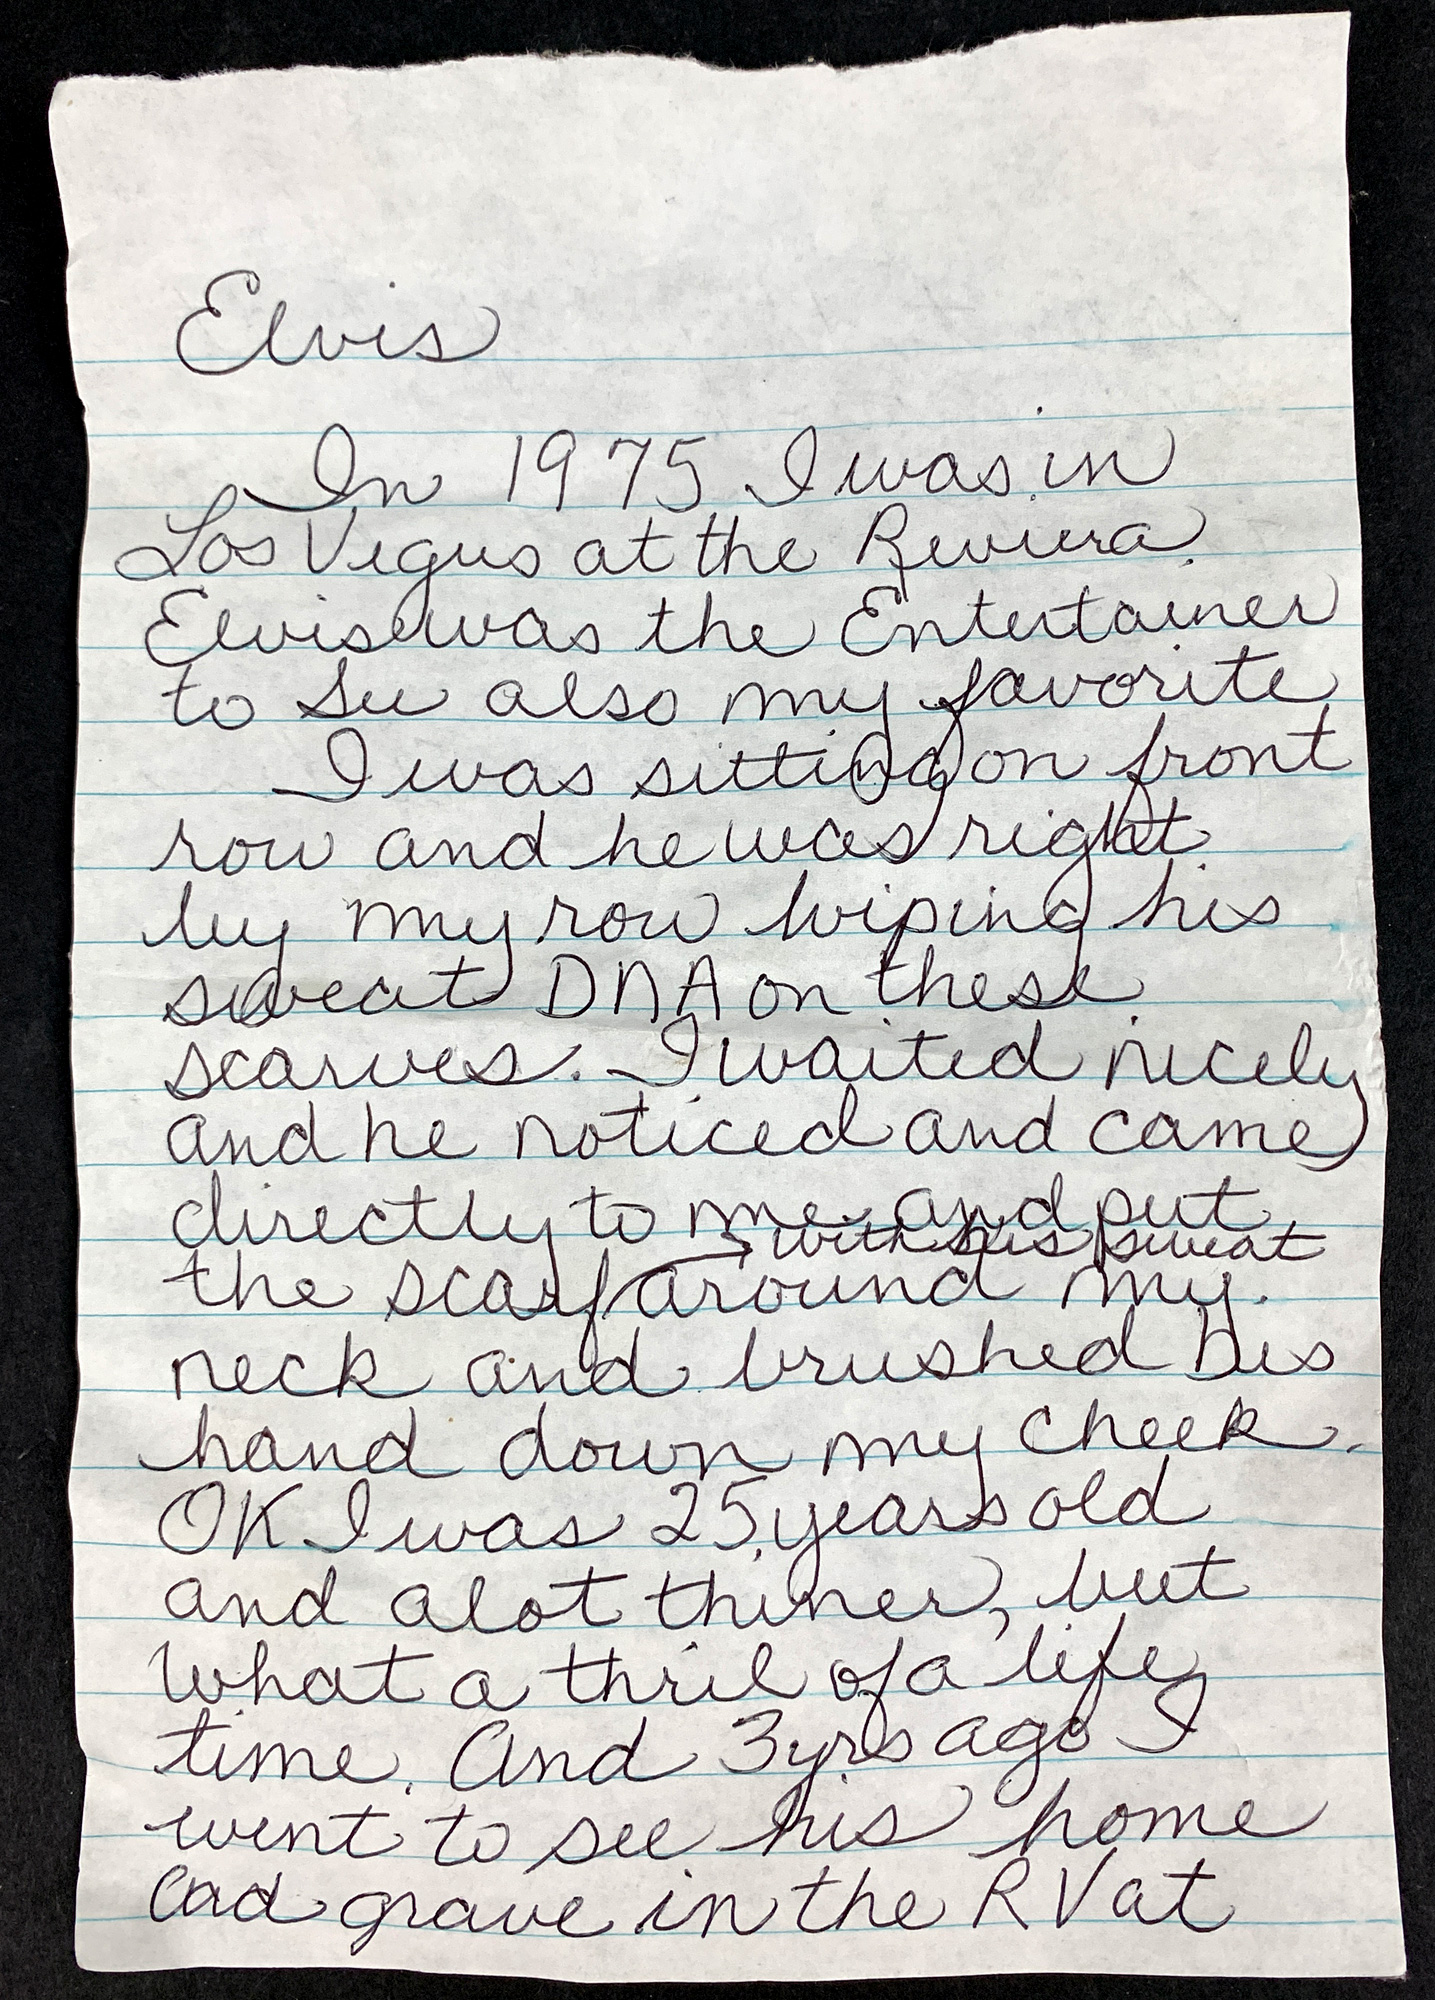 Elvis
In 1975 I was in
Los Vegus at the Reviera
Elvis was the Entertainer
to See also my favorite
I was sitting on front
row and he was right
by my row wiping his
sweat DNA on these
scarves. I waited nicely
and he noticed and came
directly to me and put
with his sweat
the scarf around my
neck and brushed his
hand down my cheek.
OK I was 25 years old
and alot thiner, but
what a thril of a life
time. And 3yrs ago I
went to see his home
and grave in the RV at